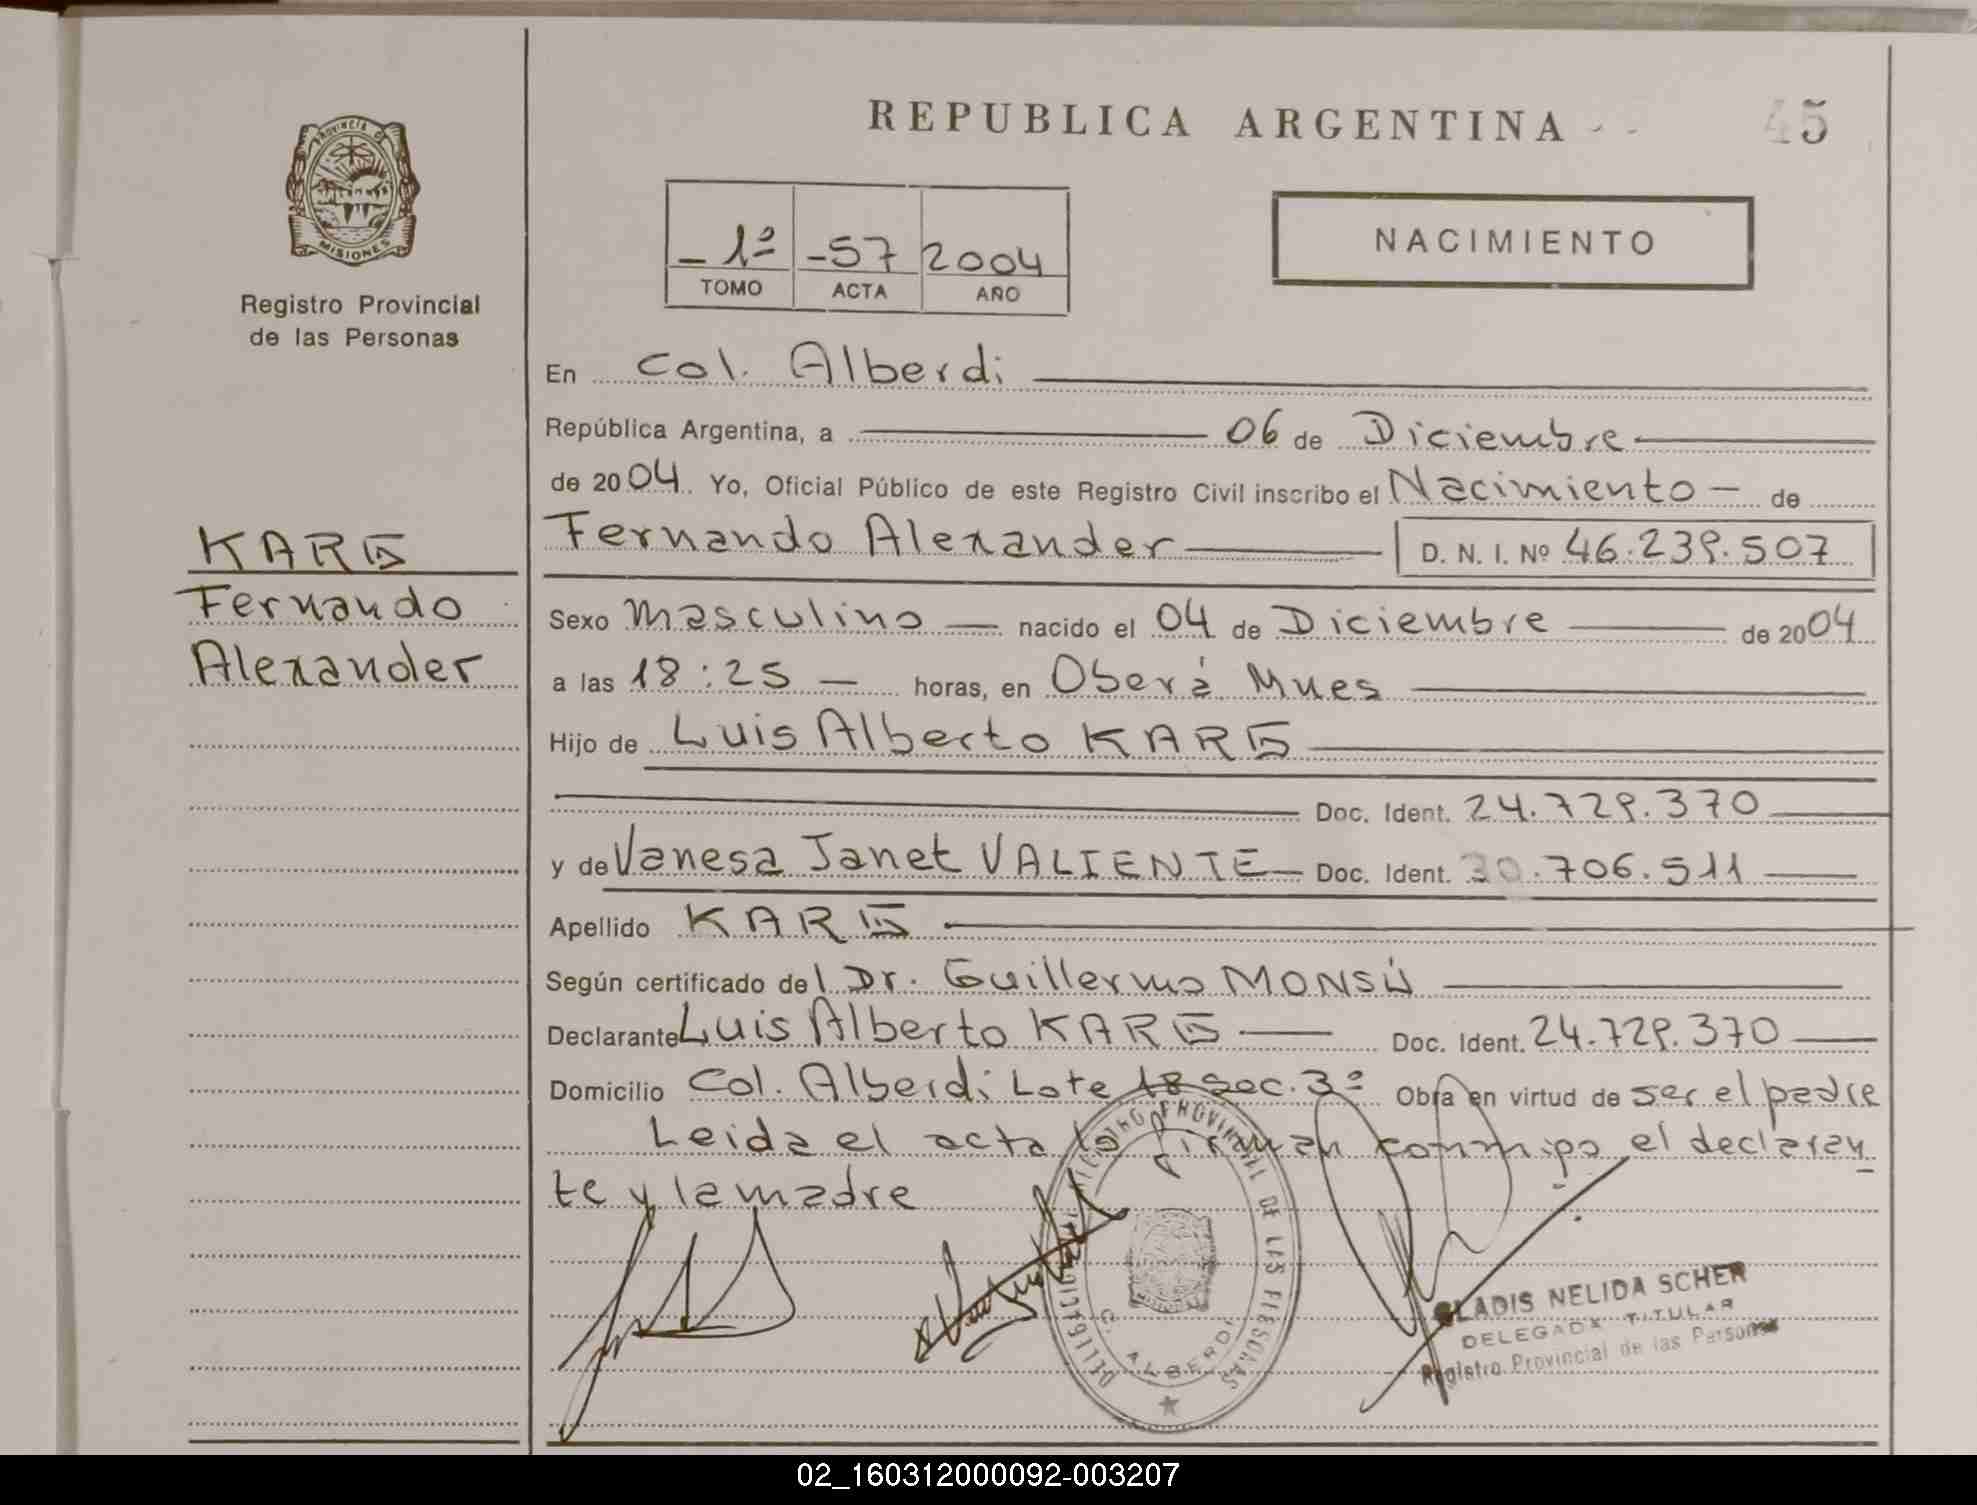 REPUBLICA ARGENTINA
45
PROVINCIA DE
MISIONES
Registro Provincial
de las Personas
1º -57 2004
TOMO ACTA AÑO
NACIMIENTO
En Col. Alberdi
República Argentina, a 06 de Diciembre
de 2004. Yo, Oficial Público de este Registro Civil inscribo el Nacimiento de
KARG
Fernando
Alexander
Fernando Alexander D. N. I. Nº 46.239.507
Sexo Masculino nacido el 04 de Diciembre de 2004
a las 18:25 horas, en Oberá Mnes
Hijo de Luis Alberto KARG
Doc. Ident. 24.729.370
y de Vanesa Janet VALIENTE Doc. Ident. 30.706.511
Apellido KARG
Según certificado del Dr. Guillermo MONSÚ
Declarante Luis Alberto KARG Doc. Ident. 24.729.370
Domicilio Col. Alberdi Lote 18 Sec. 3º Obra en virtud de ser el padre
Leida el acta la firman conmigo el declaran
te y la madre
DELEGACION REGISTRO PROVINCIAL DE LAS PERSONAS
C. ALBERDI
GLADIS NELIDA SCHER
DELEGADA TITULAR
Registro Provincial de las Personas
02_160312000092-003207